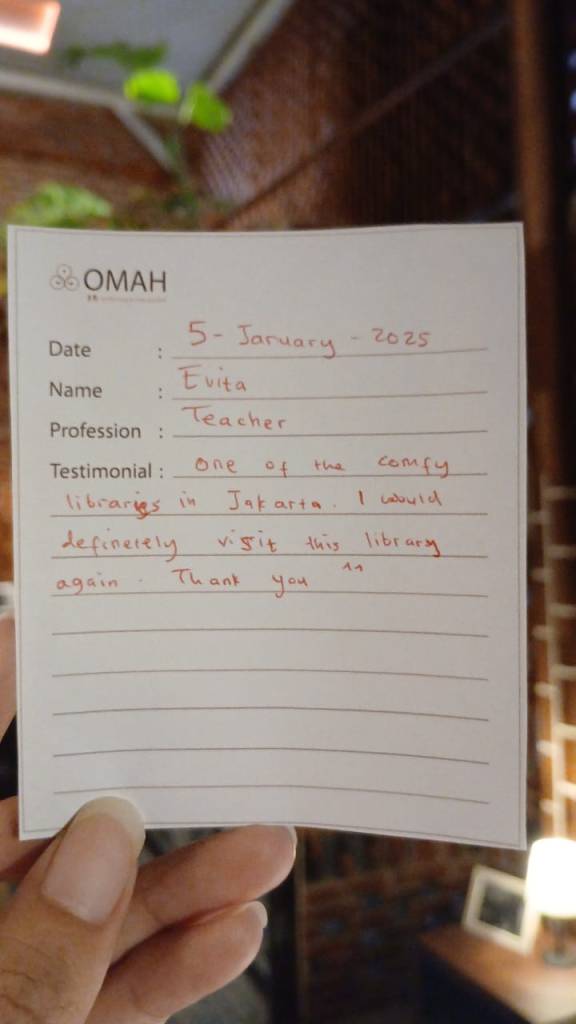 OMAH
Date : 5 - January - 2025
Name : Evita
Profession : Teacher
Testimonial : one of the comfy
libraries in Jakarta. I would
definetely visit this library
again. Thank you ^^